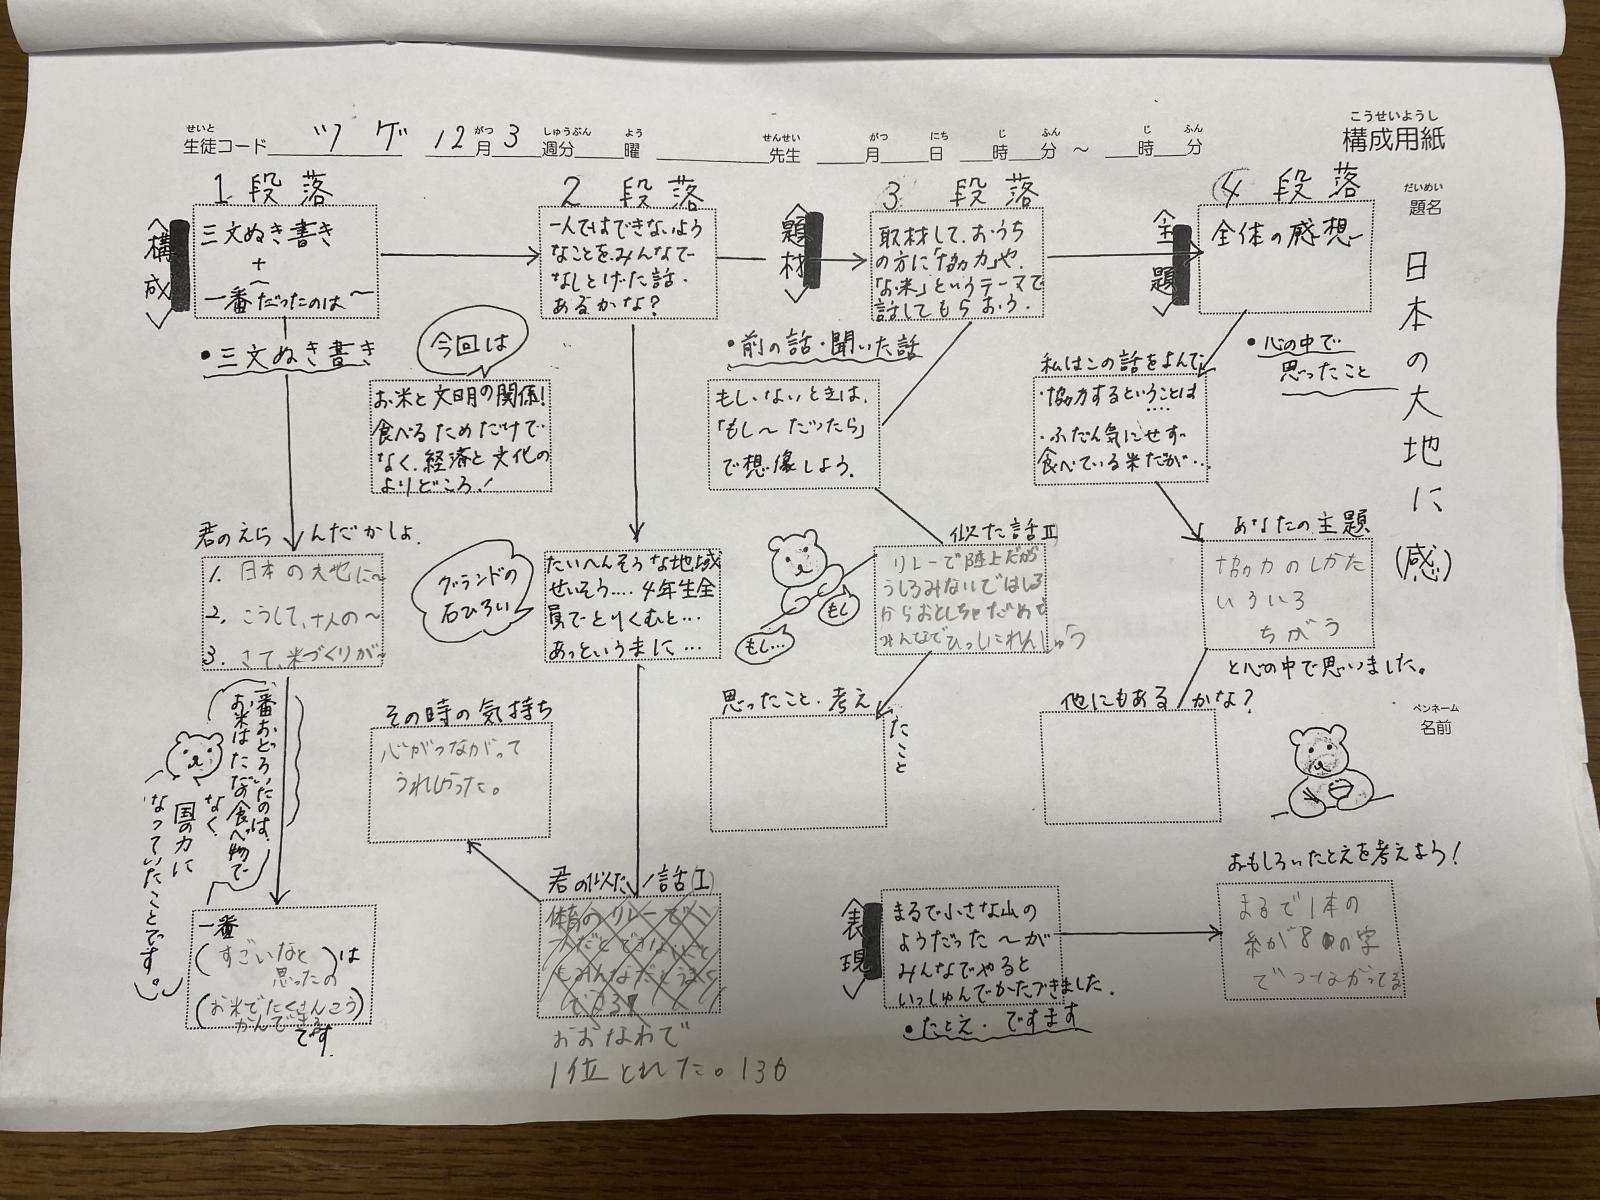 こうせいようし
構成用紙
せいと がつ しゅうぶん よう せんせい がつ にち じ ふん じ ふん
生徒コード ツゲ 12月3週分 曜 先生 月 日 時 分 ~ 時 分
だいめい
題名
日本の大地に
(感)
ペンネーム
名前
1 段落
<構成>
三文ぬき書き
+
一番だったのは~
・三文ぬき書き
君のえらんだかしょ
1. 日本の大地に~
2. こうして、十人の~
3. さて、米づくりが~
一番おどろいたのは、
お米はただ食べ物で
なく
国の力に
なっていたことです。
一番
(すごいなと
思ったの)は
(お米でたくさんこう
かんできる)
です.
2 段落
一人ではできないよう
なことをみんなで
なしとげた話.
あるかな?
今回は
お米と文明の関係!
食べるためだけで
なく、経済と文化の
よりどころ!
グランドの
石ひろい
たいへんそうな地域
せいそう.... 4年生全
員でとりくむと...
あっというまに...
その時の気持ち
心がつながって
うれしかった。
君の似た話(I)
おおなわで
1位とれた。136
<題材>
3 段落
取材して、おうち
の方に「協力」や、
「お米」というテーマで
話してもらおう.
・前の話・聞いた話
もし、ないときは、
「もし~だったら」
で想像しよう.
もし
もし...
似た話II
リレーで陸上だが
うしろみないではしる
からおとしちゃだめで
みんなでひっしにれんしゅう
思ったこと・考えたこと
<表現>
まるで小さな山の
ようだった~が
みんなでやると
いっしゅんでかたづきました.
・たとえ. ですます
おもしろいたとえを考えよう!
まるで1本の
糸が8の字
でつながってる
<主題>
4 段落
全体の感想
・心の中で
思ったこと
私はこの話をよんで
・協力するということは
....
・ふだん気にせず
食べている米だが...
あなたの主題
協力のしかた
いろいろ
ちがう
と心の中で思いました。
他にもあるかな?